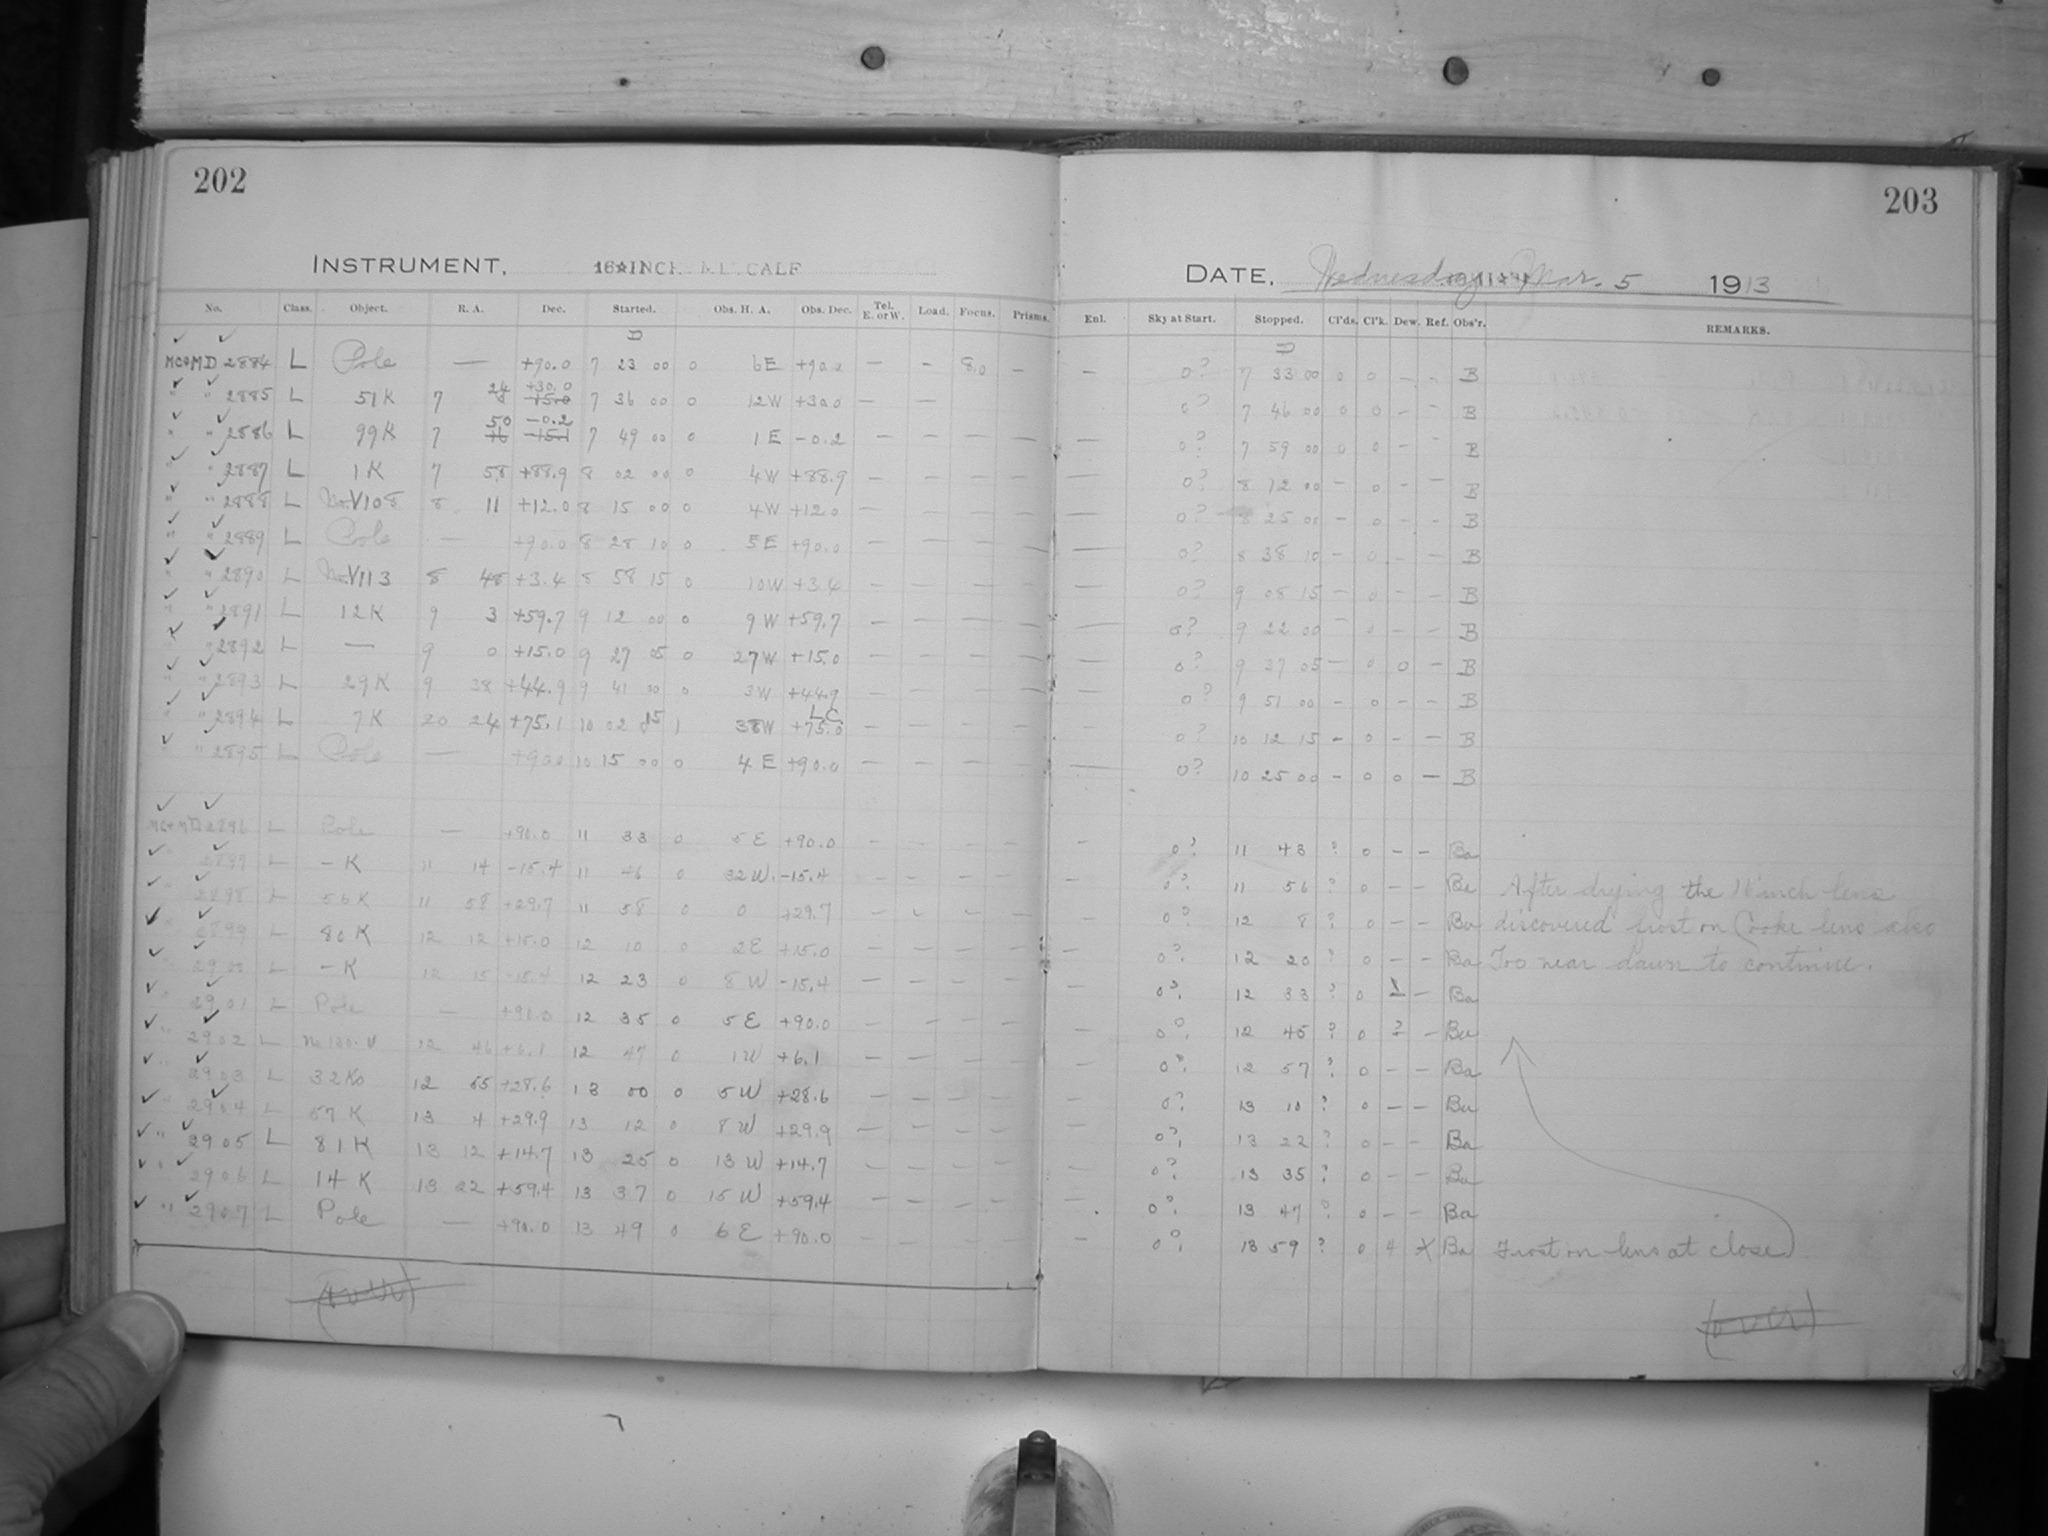 202
INSTRUMENT, 16 INCH METCALF
No. Class. Object. R. A. Dec. Started. Obs. H. A. Obs. Dec. Tel. E. or W. Load. Focus. Prisms.
MC & MD 2884 L Pole — +90.0 7 23 00 0 6E +90.0 — — 8.0 —
" " 2885 L 51K 7 24 +30.0 7 36 00 0 12W +30.0 — —
" " 2886 L 99K 7 50 -0.2 7 49 00 0 1E -0.2 — — — —
" " 2887 L 1K 7 58 +88.9 8 02 00 0 4W +88.9 — — — —
" " 2888 L No.V108 8 11 +12.0 8 15 00 0 4W +12.0 — — — —
" " 2889 L Pole — +90.0 8 28 10 0 5E +90.0 — — — —
" " 2890 L No.V113 8 48 +3.4 8 58 15 0 10W +3.4 — — — —
" " 2891 L 12K 9 3 +59.7 9 12 00 0 9W +59.7 — — — —
" 2892 L — 9 0 +15.0 9 27 05 0 27W +15.0 — — — —
" " 2893 L 29K 9 38 +44.9 9 41 00 0 3W +44.9 — — — —
" " 2894 L 7K 20 24 +75.1 10 02 15 1 38W L.C. +75.0 — — — —
" " 2895 L Pole — +90.0 10 15 00 0 4E +90.0 — — — —
MC & MD 2896 L Pole — +90.0 11 33 0 5E +90.0 — — — —
" 2897 L -K 11 14 -15.4 11 46 0 32W. -15.4 — — — —
2898 L 56K 11 58 +29.7 11 58 0 0 +29.7 — — — —
" 2899 L 80K 12 12 +15.0 12 10 0 2E +15.0 — — — —
" 2900 L -K 12 15 -15.4 12 23 0 8W -15.4 — — — —
" 2901 L Pole — +90.0 12 35 0 5E +90.0 — — — —
" 2902 L No 100.V 12 46 +6.1 12 47 0 1W +6.1 — — — —
" 2903 L 32K 12 55 +28.6 13 00 0 5W +28.6 — — — —
" 2904 L 57K 13 4 +29.9 13 12 0 8W +29.9 — — — —
" 2905 L 81K 13 12 +14.7 13 25 0 13W +14.7 — — — —
" 2906 L 14K 13 22 +59.4 13 37 0 15W +59.4 — — — —
" 2907 L Pole — +90.0 13 49 0 6E +90.0 — — — —
203
DATE, Wednesday Mar. 5 1913
Enl. Sky at Start. Stopped. Cl'ds. Cl'k. Dew. Ref. Obs'r. REMARKS.
— 0? 7 33 00 0 0 — — B
0? 7 46 00 0 0 — — B
— 0? 7 59 00 0 0 — — B
— 0? 8 12 00 — 0 — — B
— 0? 8 25 00 — 0 — — B
— 0? 8 38 10 — 0 — — B
— 0? 9 08 15 — 0 — — B
— 0? 9 22 00 — 0 — — B
— 0? 9 37 05 — 0 0 — B
— 0? 9 51 00 — 0 — — B
0? 10 12 15 — 0 — — B
— 0? 10 25 00 — 0 0 — B
— 0? 11 43 ? 0 — — Ba
— 0? 11 56 ? 0 — — Ba After drying the 16 inch lens
— 0? 12 8 ? 0 — — Ba discovered frost on Cooke lens also
— 0? 12 20 ? 0 — — Ba Too near dawn to continue.
— 0? 12 33 ? 0 1 — Ba
— 0? 12 45 ? 0 ? — Ba
— 0? 12 57 ? 0 — — Ba
— 0? 13 10 ? 0 — — Ba
— 0? 13 22 ? 0 — — Ba
— 0? 13 35 ? 0 — — Ba
— 0? 13 47 ? 0 — — Ba
— 0? 13 59 ? 0 4 X Ba Frost on lens at close
(over)